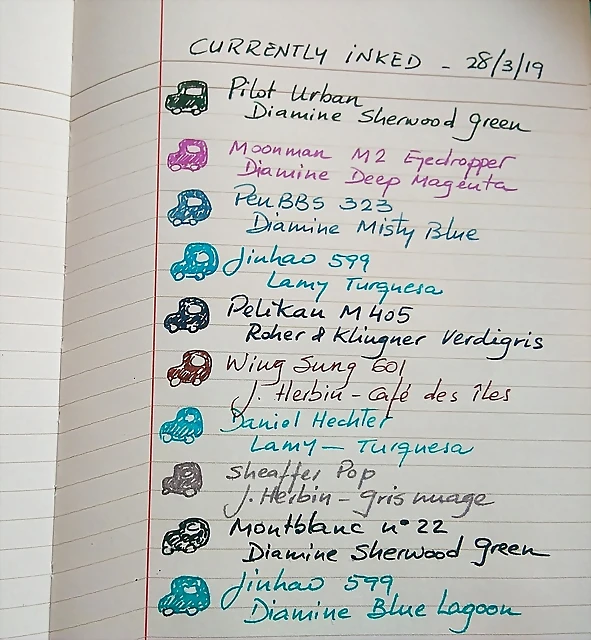 CURRENTLY INKED - 28/3/19
Pilot Urban
Diamine Sherwood green
Moonman M2 Eyedropper
Diamine Deep Magenta
PenBBS 323
Diamine Misty Blue
Jinhao 599
Lamy Turquesa
Pelikan M405
Roher & Klingner Verdigris
Wing Sung 601
J. Herbin - Café des îles
Daniel Hechter
Lamy - Turquesa
Sheaffer Pop
J. Herbin - gris nuage
Montblanc nº 22
Diamine Sherwood green
Jinhao 599
Diamine Blue Lagoon